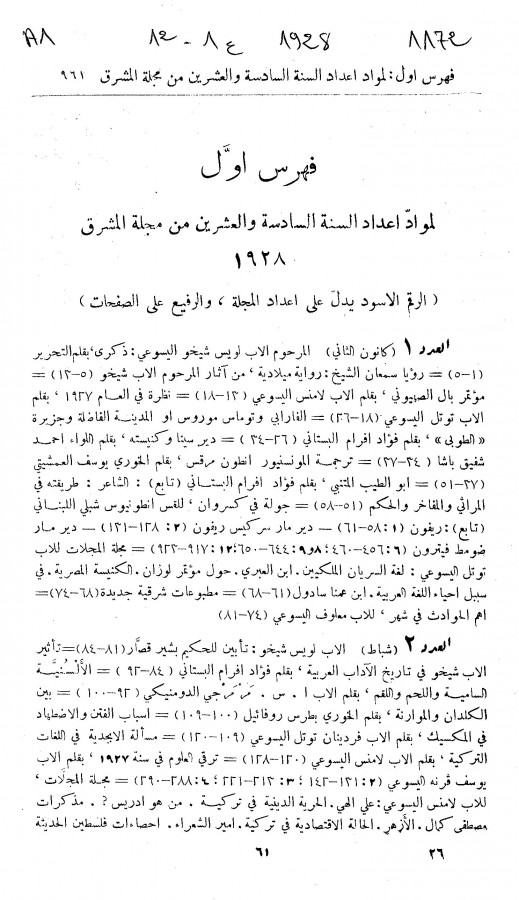 A1 12 - 1 ع 1928 1172
فهرس اول: لمواد اعداد السنة السادسة والعشرين من مجلة المشرق ٩٦١
فهرس اوَّل
لموادّ اعداد السنة السادسة والعشرين من مجلة المشرق
١٩٢٨
( الرقم الاسود يدلّ على اعداد المجلة ، والرفيع على الصفحات )
العدد ١ (كانون الثاني) المرحوم الاب لويس شيخو اليسوعي: ذكرى، بقلم التحرير
(١-٥) = رؤيا سمعان الشيخ: رواية ميلادية ، من آثار المرحوم الاب شيخو (٥-١٢) =
مؤتمر بال الصهيوني ، بقلم الاب لامنس اليسوعي (١٢-١٨) = نظرة في العام ١٩٢٧ ، بقلم
الاب توتل اليسوعي (١٨-٢٦) = الفارابي وتوماس موروس او المدينة الفاضلة وجزيرة
«الطوبى» ، بقلم فؤاد افرام البستاني (٢٦-٣٤) = دير سينا وكنيسته ، بقلم اللواء احمد
شفيق باشا (٣٤-٣٧) = ترجمة المونسنيور انطون مرقس ، بقلم الخوري يوسف العمشيتي
(٣٧-٥١) = ابو الطيب المتنبي ، بقلم فؤاد افرام البستاني (تابع) : الشاعر : طريقته في
المراثي والمفاخر والحكم (٥١-٥٨) = جولة في كسروان ، للقس انطونيوس شبلي اللبناني
(تابع): ريفون (١: ٥٨-٦١) — دير مار سركيس ريفون (٢: ١٢٨-١٣١) — دير مار
ضومط فيترون (٦: ٤٥٦-٤٦٠؛ ٨و٩: ٦٤٤-٦٥٠؛ ١٢: ٩١٧-٩٢٣) = مجلة المجلات للاب
توتل اليسوعي : لغة السريان الملكيين. ابن العبري. حول مؤتمر لوزان. الكنيسة المصرية. في
سبيل احياء اللغة العربية. ابن عمنا سادول (٦١-٦٨) = مطبوعات شرقية جديدة (٦٨-٧٤) =
اهم الحوادث في شهر ، للاب معلوف اليسوعي (٧٤-٨١)
العدد ٢ (شباط) الاب لويس شيخو: تأبين للحكيم بشير قصّار (٨١-٨٤) = تأثير
الاب شيخو في تاريخ الآداب العربية ، بقلم فؤاد افرام البستاني (٨٤-٩٢) = الأَلْسُنيَّة
السامية واللحم واللقم ، بقلم الاب ا . س . مَرْمَرجي الدومنيكي (٩٣-١٠٠) = بين
الكلدان والموارنة ، بقلم الخوري بطرس روفائيل (١٠٠-١٠٩) = اسباب الفتن والاضطهاد
في المكسيك ، بقلم الاب فردينان توتل اليسوعي (١٠٩-١٢٠) = مسألة الابجدية في اللغات
التركية ، بقلم الاب لامنس اليسوعي (١٢٠-١٢٨) = ترقي العلوم في سنة ١٩٢٧ ، بقلم الاب
يوسف قرنه اليسوعي (٢: ١٣١-١٤٢ ؛ ٣: ٢١٣-٢٢١ ؛ ٤: ٢٨٨-٢٩٠) = مجلة المجلّات ،
للاب لامنس اليسوعي: علي الهي. الحرية الدينية في تركية . من هو ادريس ? . مذكرات
مصطفى كمال. الأزهر. الحالة الاقتصادية في تركية. امير الشعراء. احصاءات فلسطين الحديثة
٦١ ٢٦